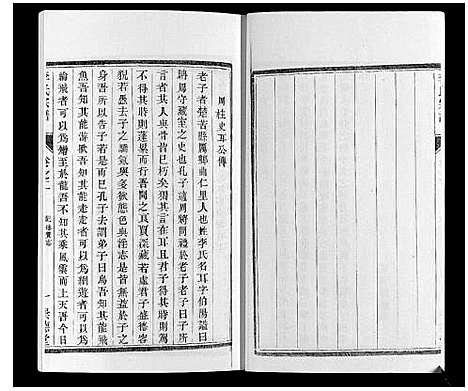 周柱史耳公傳
老子者楚苦縣厲鄉曲仁里人也姓李氏名耳字伯陽謚曰
聃周守藏室之史也孔子適周將問禮於老子老子曰子所
言者其人與骨皆已朽矣獨其言在耳且君子得其時則駕
不得其時則蓬累而行吾聞之良賈深藏若虛君子盛德容
貌若愚去子之驕氣與多欲態色與淫志是皆無益於子之
身吾所以告子若是而已孔子去謂弟子曰鳥吾知其能飛
魚吾知其能游獸吾知其能走走者可以為網游者可以為
綸飛者可以為矰至於龍吾不知其乘風雲而上天吾今日
李氏宗譜
卷之一
一